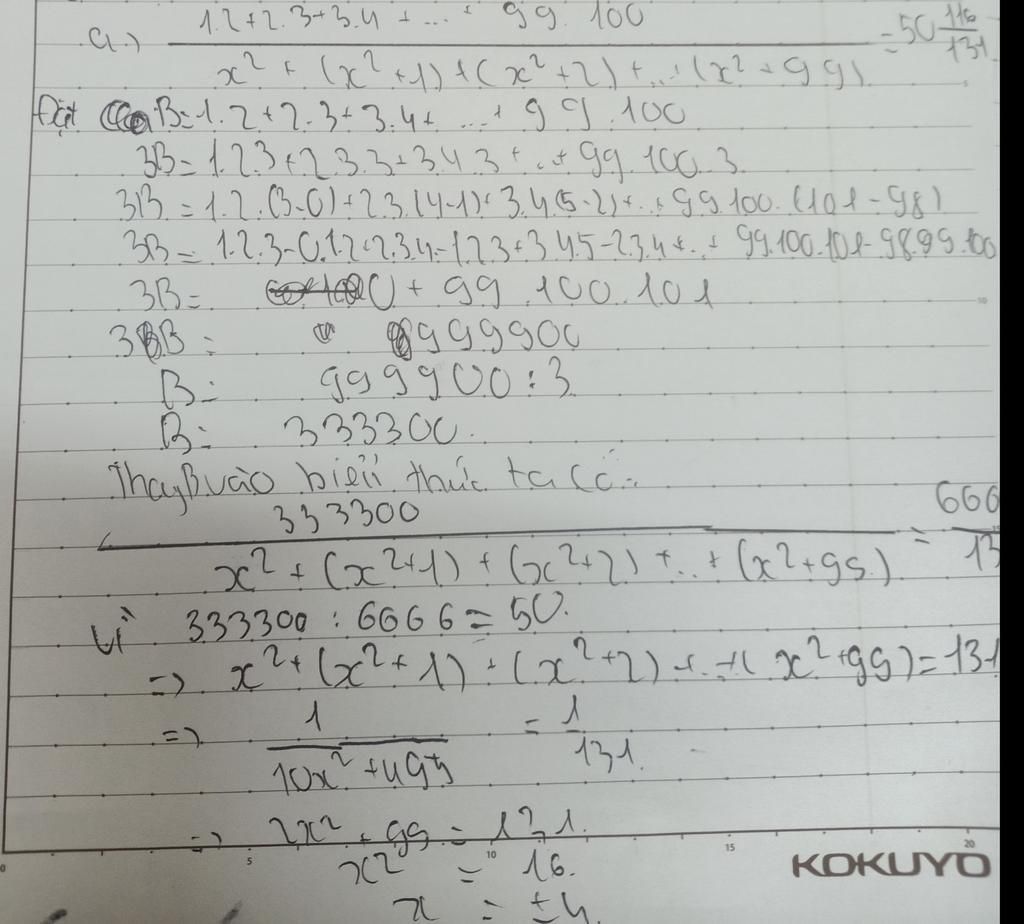 a.) (1.2+2.3+3.4+...+99.100)/(x²+(x²+1)+(x²+2)+..+(x²+99)) = 50 116/131
Đặt B=1.2+2.3+3.4+...+99.100
3B=1.2.3+2.3.3+3.4.3+..+99.100.3
3B=1.2.(3-0)+2.3.(4-1)+3.4(5-2)+..+99.100.(101-98)
3B=1.2.3-0.1.2+2.3.4-1.2.3+3.4.5-2.3.4+..+99.100.101-98.99.100
3B= 0+99.100.101
3B= 999900
B= 999900:3
B= 333300.
Thay B vào biểu thức ta có:
333300/(x²+(x²+1)+(x²+2)+..+(x²+99)) = 666/13
Vì 333300:6666=50.
=> x²+(x²+1)+(x²+2)+..+(x²+99)=131
=> 1/(10x²+495) = 1/131.
=> 2x²+99=131.
x² = 16.
x = ±4.
0 5 10 15 20
KOKUYO